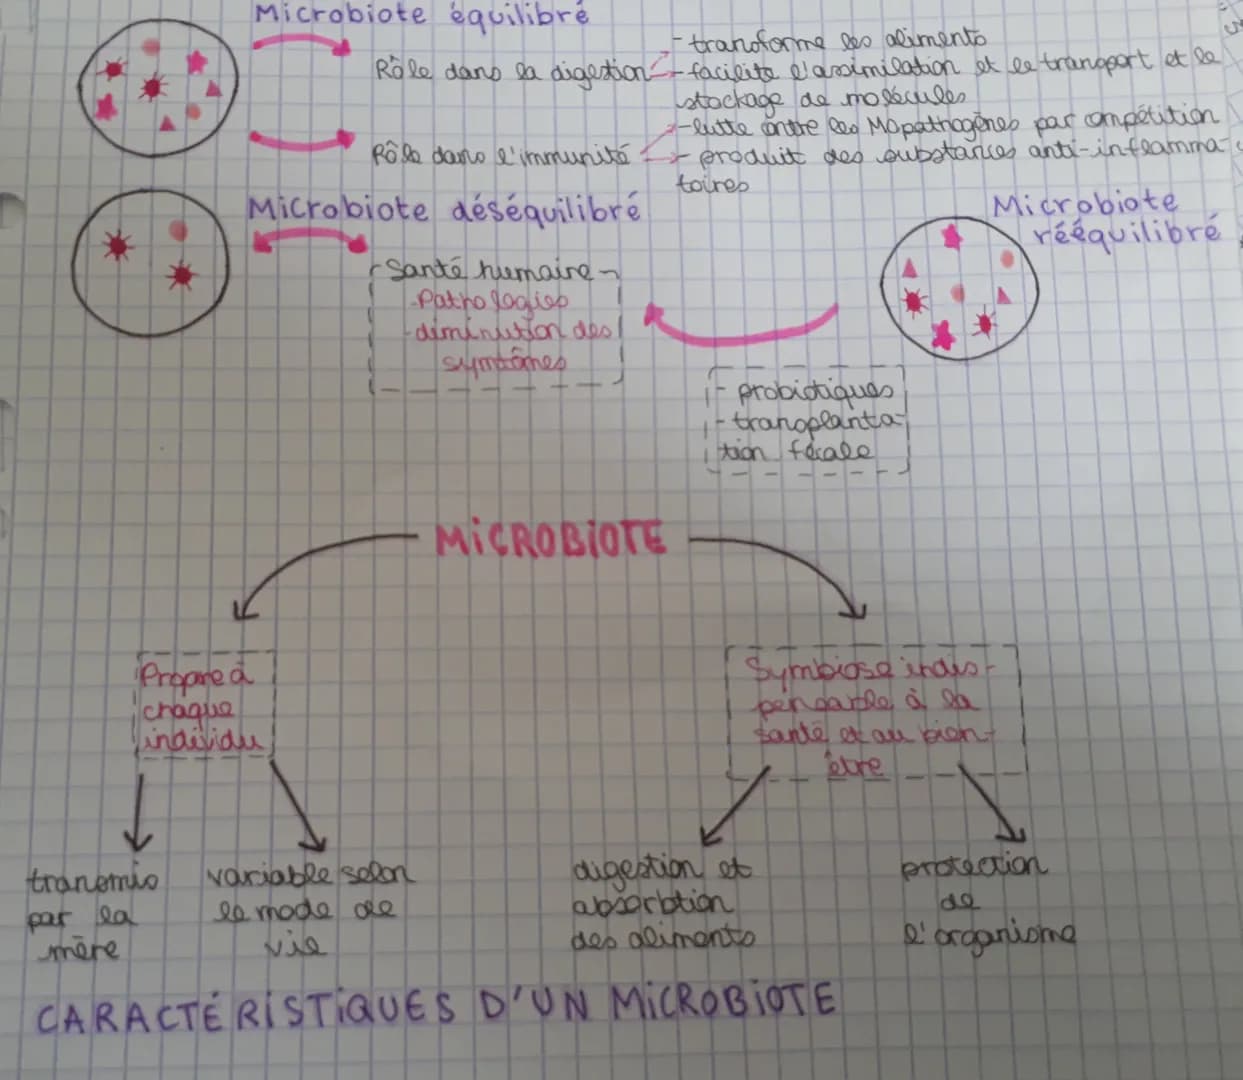 Microbiote équilibré
Rôle dans la digestion
- transforme les aliments
- facilite l'assimilation et le transport et le
stockage de molécules
Rôle dans l'immunité
- lutte contre les MO pathogènes par compétition
- produit des substances anti-inflamma-
toires
Microbiote déséquilibré
Santé humaine
- Pathologies
- diminution des
symtômes
Microbiote
rééquilibré
- probiotiques
- transplanta-
tion fécale
MICROBIOTE
Propre à
chaque
individu
Symbiose indis-
pensable à la
santé et au bien-
être
transmis
par la
mère
variable selon
le mode de
vie
digestion et
absorbtion
des aliments
protection
de
l'organisme
CARACTÉRISTIQUES D'UN MICROBIOTE